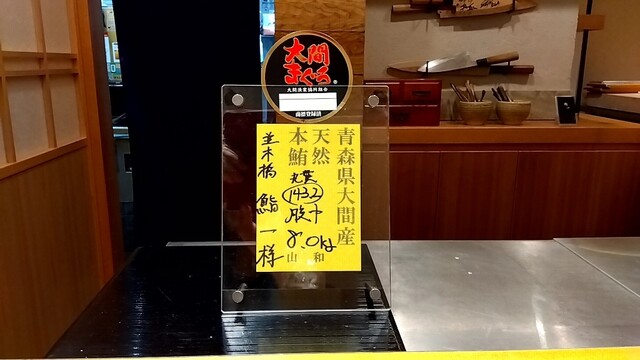 大間
まぐろ
®
大間漁業協同組合
商標登録済
青森県大間産
天然
本鮪
143.2
8.0kg
山和
並木橋 鮨一様